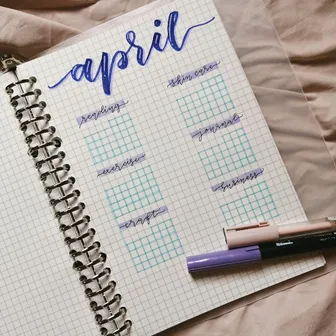 april
reading
skin care
exercise
journal
craft
business